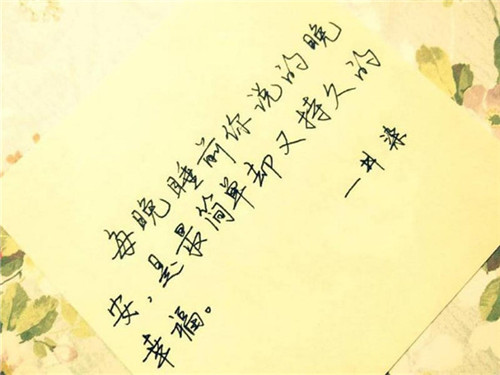 每晚睡前你说的晚
安，是最简单却又持久的
幸福。
一井染